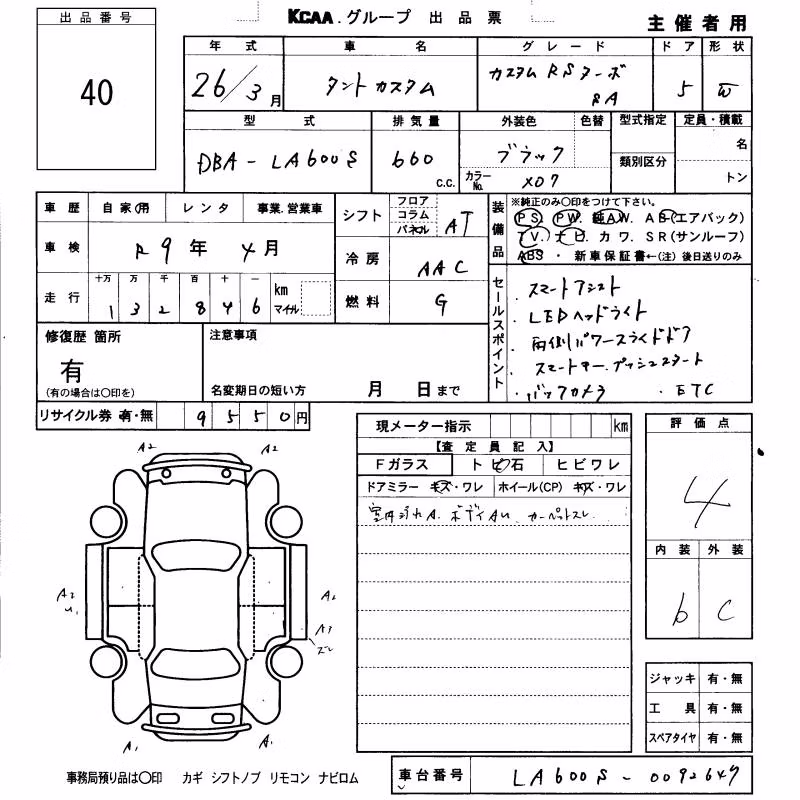 出品番号
40
KCAA.グループ 出品票
主催者用
年式 車名 グレード ドア 形状
26/3月 タントカスタム カスタムRSターボ SA 5 W
型式 排気量 外装色 色替 型式指定 定員・積載
DBA-LA600S 660 c.c. ブラック 類別区分 名
カラーNo. X07 トン
車歴 自家用 レンタ 事業.営業車
車検 R9年 4月
走行 十万 万 千 百 十 一
1 3 2 8 4 6 km マイル
シフト フロア コラム パネル AT
冷房 AAC
燃料 G
装備品
※純正のみ○印をつけて下さい。
PS. PW. 純AW. AB(エアバック)
TV. ナビ. カワ. SR(サンルーフ)
ABS ・ 新車保証書←(注) 後日送りのみ
セールスポイント
・スマートアシスト
・LEDヘッドライト
・両側パワースライドドア
・スマートキー.プッシュスタート
・バックカメラ ・ETC
修復歴 箇所
有
(有の場合は○印を)
注意事項
名変期日の短い方 月 日まで
リサイクル券 有・無 9550円
現メーター指示 km
【査定員記入】
Fガラス トビ石 ヒビワレ
ドアミラー キズ・ワレ ホイール(CP) キズ・ワレ
室内汚れA. ボディAU. カーペットスレ
評価点
4
内装 外装
b C
A2 A2
A2 U1
A2
A3 ズレ
A1 A1
ジャッキ 有・無
工具 有・無
スペアタイヤ 有・無
事務局預り品は○印 カギ シフトノブ リモコン ナビロム
車台番号 LA600S-0092647